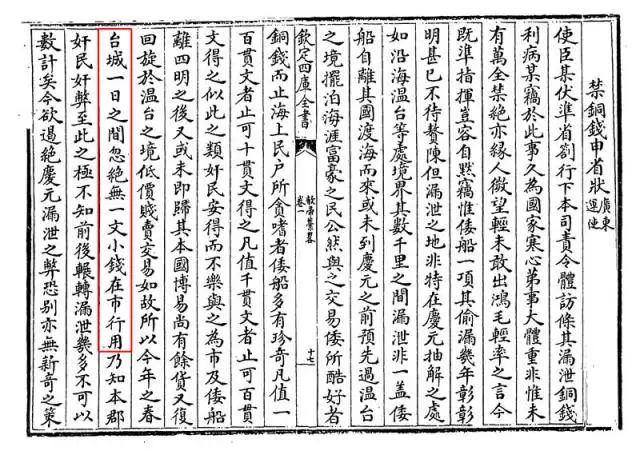 禁銅錢申省狀廣東運使
使臣某伏準省劄行下本司責令體訪條其漏泄銅錢
利病某竊於此事久為國家寒心第事大體重非惟未
有萬全禁絶亦緣人微望輕未敢出鴻毛輕率之言今
既準指揮豈容自黙竊惟倭船一項其偷漏幾年彰彰
明甚已不待贅陳但漏泄之地非特在慶元抽解之處
如沿海温台等處境界其數千里之間漏泄非一蓋倭
船自離其國渡海而來或未到慶元之前預先過温台
之境擺泊海涯富豪之民公然與之交易倭所酷好者
欽定四庫全書
卷一
十七
銅錢而止海上民戶所貪嗜者倭船多有珍奇凡值一
百貫文者止可十貫文得之凡值千貫文者止可百貫
文得之似此之類奸民安得而不樂與之為市及倭船
離四明之後又或未即歸其本國博易尚有餘貨又復
回旋於温台之境低價賤賣交易如故所以今年之春
台城一日之間忽絶無一文小錢在市行用乃知本郡
奸民奸弊至此之極不知前後輾轉漏泄幾多不可以
數計矣今欲遏絶慶元漏泄之弊恐别亦無新奇之策